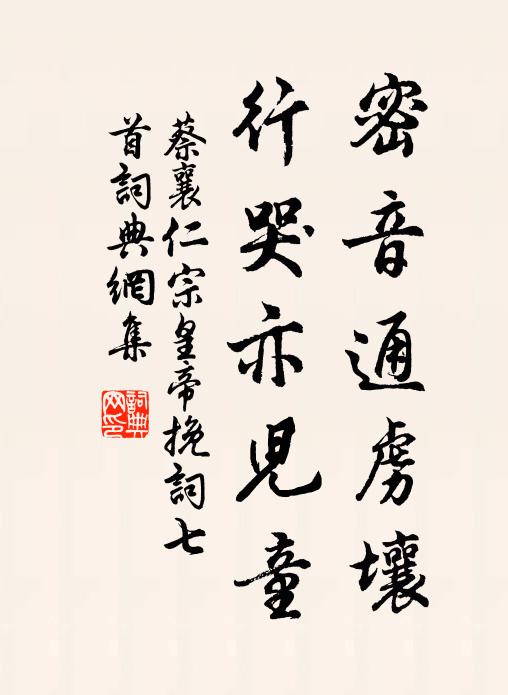 密音通虜壤
行哭亦兒童
蔡襄仁宗皇帝挽詞七
首詞典網集
詞典
网印